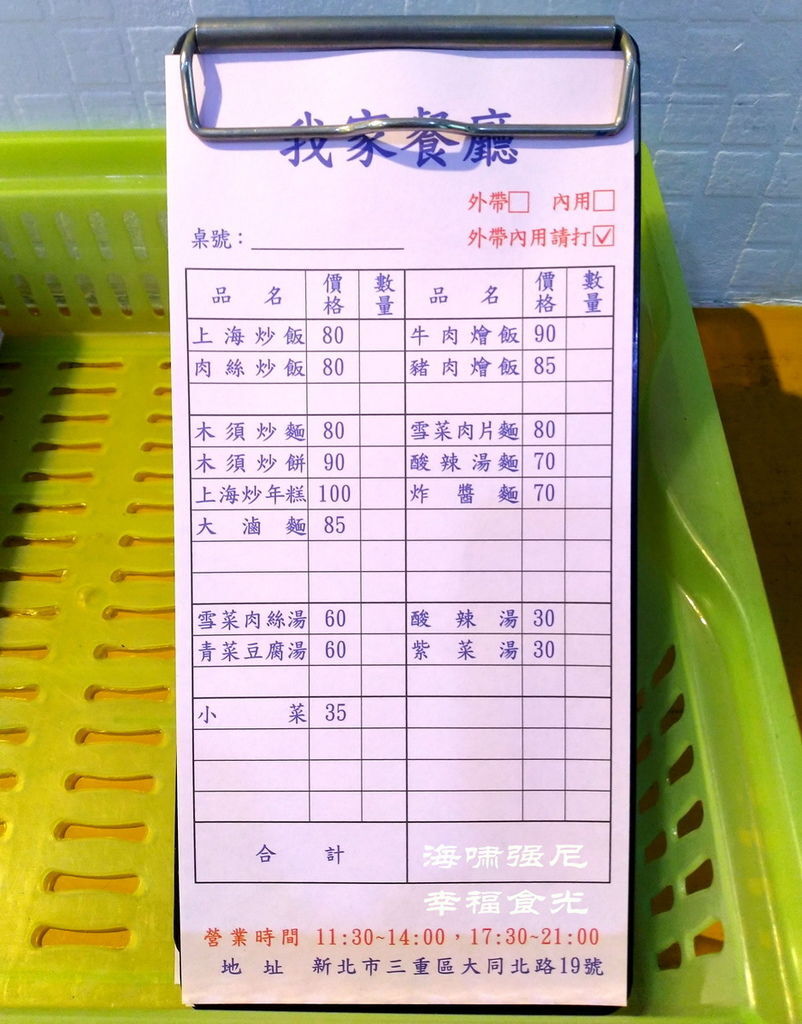 我家餐廳
外帶□ 內用□
桌號：
外帶內用請打☑
品名 價格 數量 品名 價格 數量
上海炒飯 80 牛肉燴飯 90
肉絲炒飯 80 豬肉燴飯 85
木須炒麵 80 雪菜肉片麵 80
木須炒餅 90 酸辣湯麵 70
上海炒年糕 100 炸醬麵 70
大滷麵 85
雪菜肉絲湯 60 酸辣湯 30
青菜豆腐湯 60 紫菜湯 30
小菜 35
合計
海嘯强尼
幸福食光
營業時間 11:30~14:00，17:30~21:00
地址 新北市三重區大同北路19號